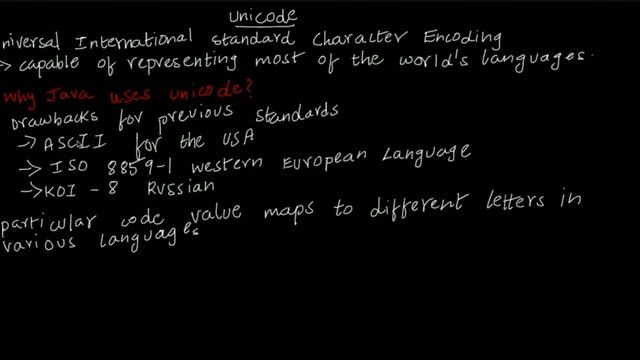 Unicode
niversal International standard character Encoding
-> capable of representing most of the world's languages.
Why Java uses unicode?
Drawbacks for previous standards
-> ASCII for the USA
-> ISO 8859-1 western European Language
-> KOI - 8 Russian
particular code value maps to different letters in
various languages